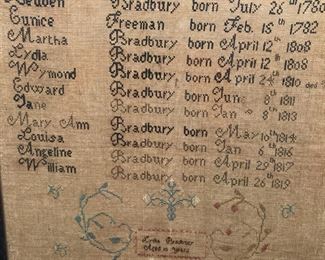 Reuben Bradbury born July 26th 1780
Eunice Freeman born Feb. 18th 1782
Martha Bradbury born April 12th 1808
Lydia Bradbury born April 12th 1808
Wymond Bradbury born April 24th 1810 died
Edward Bradbury born June 8th 1811
Jane Bradbury born Jan 8th 1813
Mary Ann Bradbury born May 10th 1814
Louisa Bradbury born Jan 6th 1816
Angeline Bradbury born April 29th 1817
William Bradbury born April 26th 1819
Lydia Bradbury
Aged 10 years